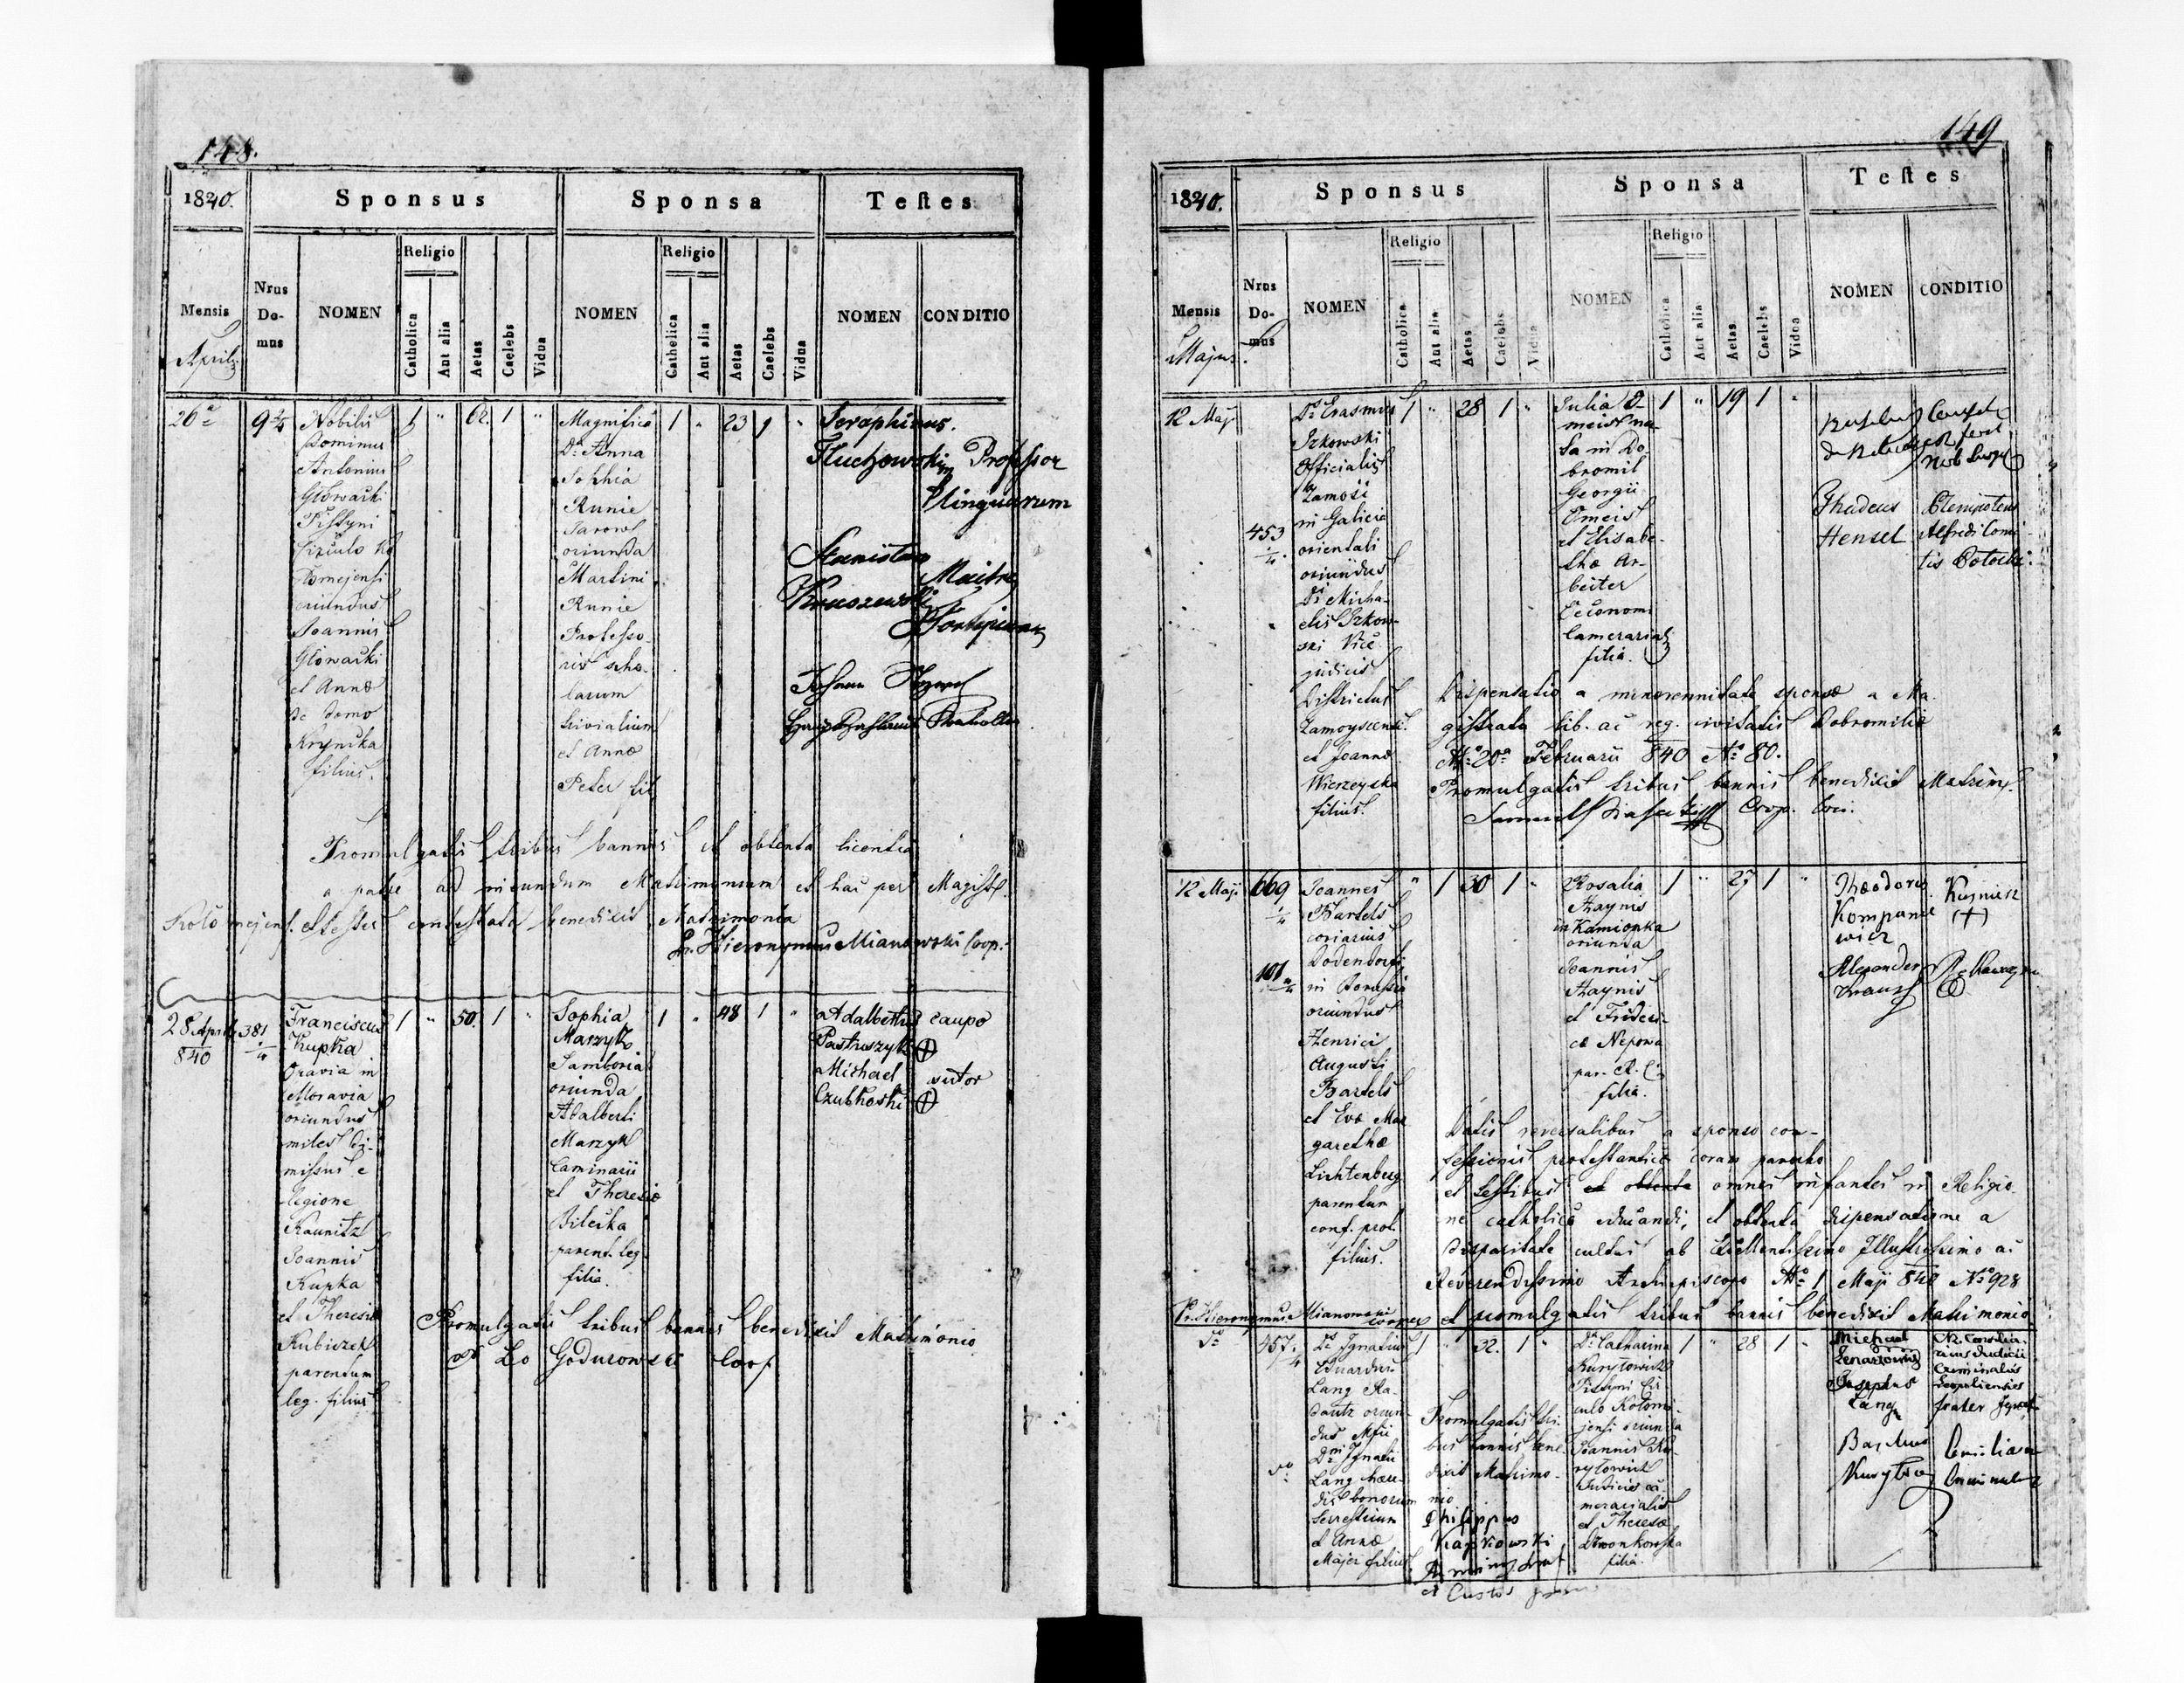 148.
1840.
Sponsus
Sponsa
Teſtes
Mensis
Aprilis
Nrus
Do-
mus
NOMEN
Religio
Catholica
Aut alia
Aetas
Caelebs
Vidua
NOMEN
Religio
Catholica
Aut alia
Aetas
Caelebs
Vidua
NOMEN
CONDITIO
26a
9 2/4
Nobilis
Dominus
Antonius
Głowacki
Pistyni
Circulo Ko
lomejensi
oriundus
Joannis
Głowacki
et Annae
de domo
Krynicka
filius.
1 " 62. 1 "
Magnifica
Da Anna
Sophia
Runie
Jarosl
oriunda
Martini
Runie
Professo-
ris scho-
larum
trivialium
et Annae
Peter fil
1 " 23 1 "
Seraphinus
Tluchowski Professor
Linguarum
Stanislaw
Kruszewski
Maitre
Johann
Promulgatis tribus bannis et obtenta licentia
a patre ad ineundum Matrimonium et hac per Magist.
Kolomejens. et testes contestata benedixit Matrimonio
Pr. Hieronymus Mianowski Coop.
28 Aprilis
840
381
/4
Franciscus
Kupka
Oravia in
Moravia
oriundus
miles di-
missus e
legione
Kaunitz
Joannis
Kupka
et Theresiae
Kubiczek
parentum
leg. filius
1 " 50. 1 "
Sophia
Marzyk
Samboria
oriunda
Adalberti
Marzyk
Caminarii
et Theresiae
Bilecka
parent. leg.
filia.
1 " 48 1 "
Adalbertus caupo
Pastruszyk +
Michael sutor
Czubkoski +
Promulgatis tribus bannis benedixit Matrimonio
Godurowski Coop
149
1840.
Sponsus
Sponsa
Teſtes
Mensis
Majus.
Nrus
Do-
mus
NOMEN
Religio
Catholica
Aut alia
Aetas
Caelebs
Vidua
NOMEN
Religio
Catholica
Aut alia
Aetas
Caelebs
Vidua
NOMEN
CONDITIO
12 Maj
453
/4.
Ds Erasmus
Izkowski
Officialis
Zamość
in Galicia
orientali
oriundus
Di Micha-
elis Izkow-
ski Vice
judicis
Districtus
Zamoyscensis.
et Joannae
Wierzeyska
filius.
1 " 28 1 "
Julia O-
meist na-
ta in Do
bromil
Georgii
Omeist
et Elisabe-
thae Ar-
beiter
Oeconom
Camerarial
filia.
1 " 19 1 "
Thadeus
Hensel
Plenipotens
Alfredi Comi-
tis Potocki.
Dispensatio a minorennitate sponsae a Ma
gistratu lib. ac reg. civitatis Dobromiliae
ddo 20a Februarii 840 No 80.
Promulgatis tribus bannis benedixit Matrim.
Samuel Coop.
12 Maji
669
/4
101
2/4
Joannes
Bartels
coriarius
Dodendorf
in Borussia
oriundus
Henrici
Augusti
Bartels
et Evae Mar
garethae
Lichtenberg
parentum
conf. prot.
filius.
" 1 30 1 "
Rosalia
Haynis
in Kamionka
oriunda
Joannis
Haynis
et Frideri-
cae Nepowa
par. R. C.
filia.
1 " 27 1 "
Theodorus
Kompanie
wicz
Kusnierz
(+)
Alexander
Datis reversalibus a sponso con-
fessionis protestanticae coram parocho
et testibus et obtenta omnes infantes in Religio
ne catholica educandi, et obtenta dispensatione a
disparitate cultus ab Excellentissimo Illustrissimo ac
Reverendissimo Archiepiscopo ddo 1 Maji 840 No 928
Pr. Hieronymus Mianowski cooper et promulgatis tribus bannis benedixit Matrimonio
do
457.
/4
do
Ds Ignatius
Eduardus
Lang Ra-
dautz oriun-
dus Mfii
Dni Ignatii
Lang haere-
dis bonorum
terrestrium
et Annae
Majer filius
1 " 32. 1 "
Da Catharina
Kurylowicz
Pistyni Cir
culo Kolomi-
jensi oriunda
Joannis Ku-
rylowicz
Judicis ca-
meracialis
et Theresae
Dzwonkowska
filia.
1 " 28 1 "
Michael
Lenartowicz
CR. Consilia-
rius Judicii
Criminalis
Leopoliensis
Josephus
Lang
frater
Basilius
Promulgatis tri-
bus bannis bene-
dixit Matrimo-
nio
Philippus
et Custos